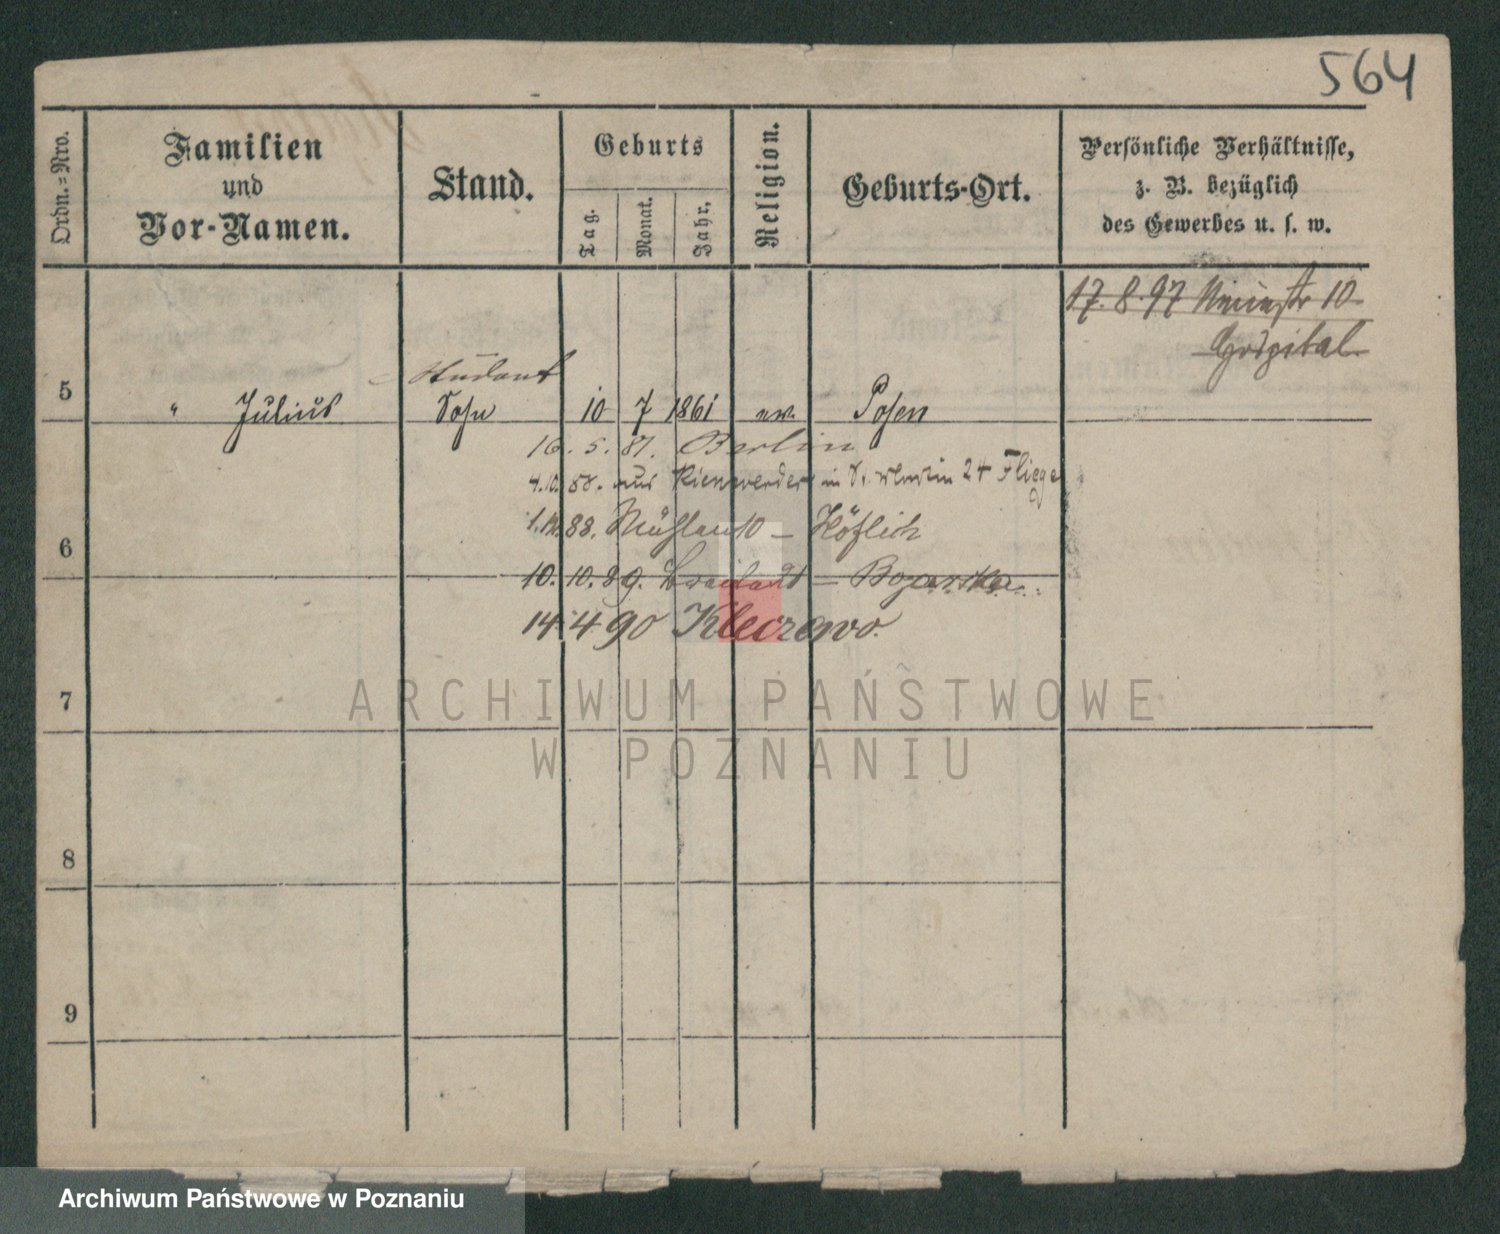 564
Ordn.=Nro.
Familien
und
Vor-Namen.
Stand.
Geburts
Tag.
Monat.
Jahr.
Religion.
Geburts-Ort.
Persönliche Verhältnisse,
z. B. bezüglich
des Gewerbes u. s. w.
17. 8. 97 10
Hospital
Student
5 " Julius Sohn 10 7 1861 ev. Posen
16. 5. 81. Berlin
4.10. 88. aus in 24 Fliege
88. – Höflich
6
10. 10. 89. =
14. 4 90 Kleczewo.
7
ARCHIWUM PAŃSTWOWE
W POZNANIU
8
9
Archiwum Państwowe w Poznaniu